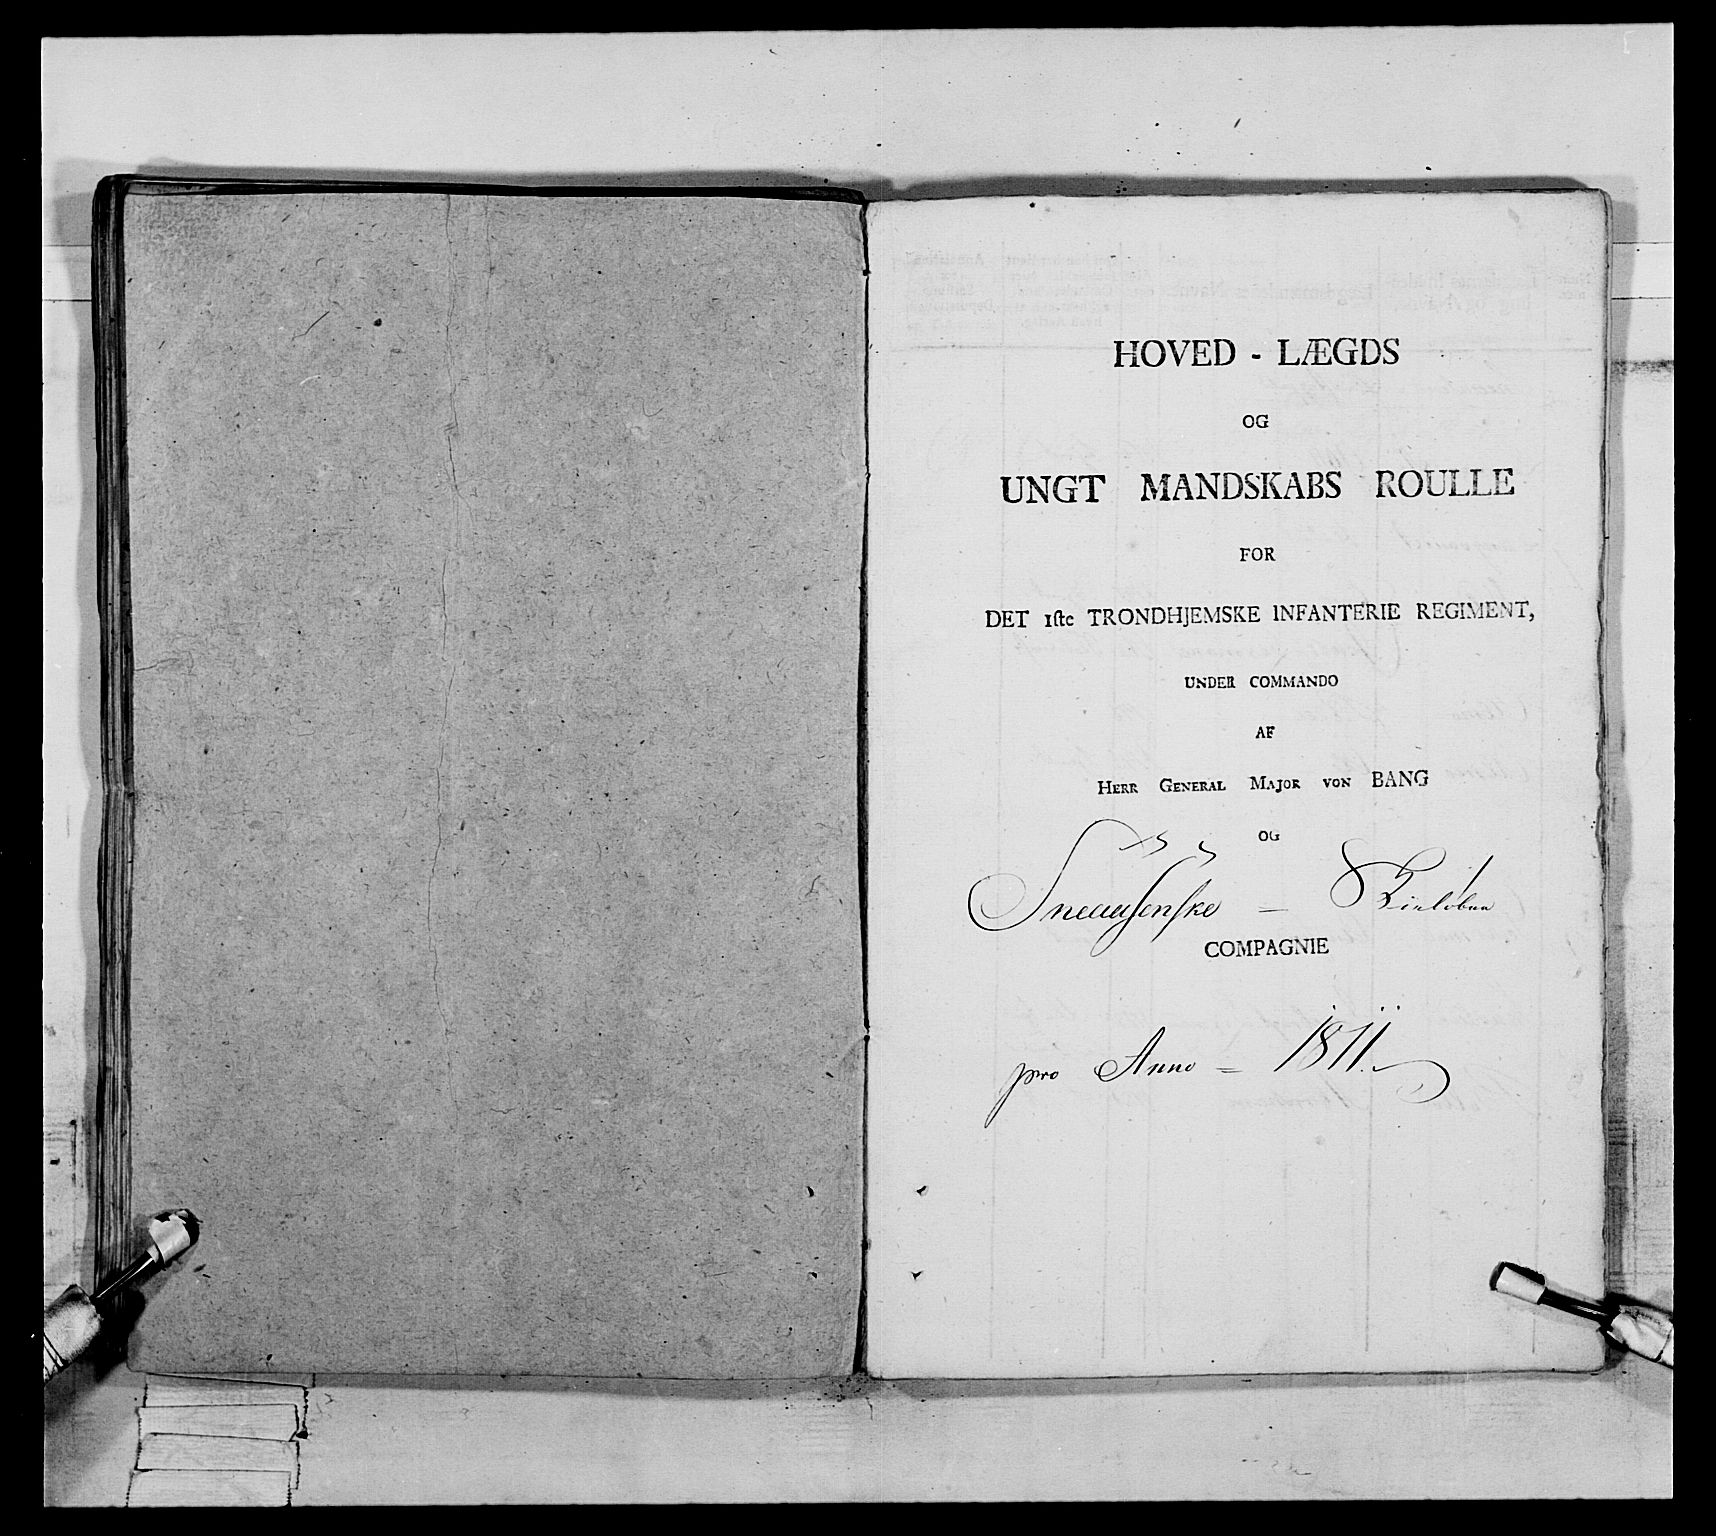 HOVED - LÆGDS
OG
UNGT MANDSKABS ROULLE
FOR
DET 1ste TRONDHJEMSKE INFANTERIE REGIMENT,
UNDER COMMANDO
AF
HERR GENERAL MAJOR VON BANG
OG
Sneaasenske - Skieløber
COMPAGNIE
pro Anno = 1811.